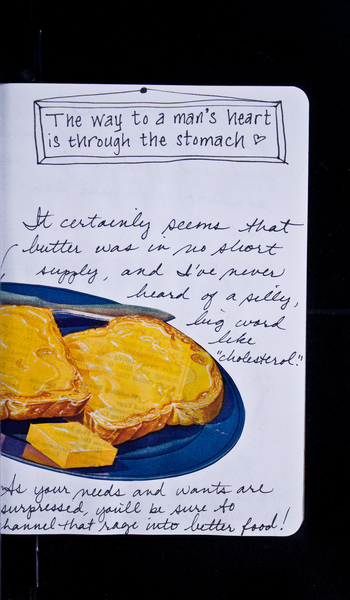 The way to a man's heart
is through the stomach ♡
It certainly seems that
butter was in no short
supply, and I've never
heard of a silly,
big word
like
"cholesterol."
As your needs and wants are
surpressed, you'll be sure to
channel that rage into better food!